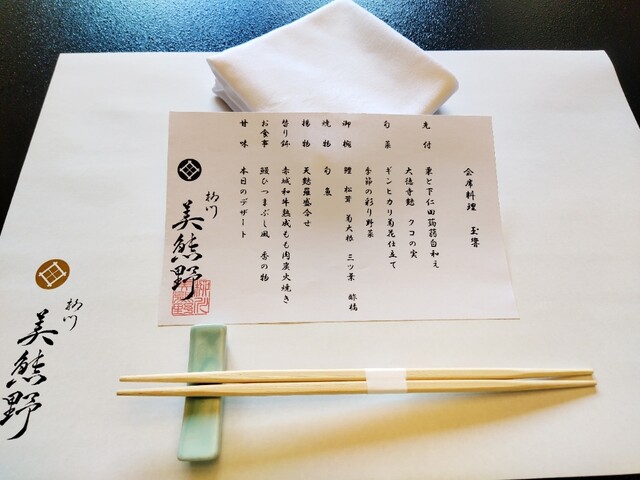 会席料理　玉響
先付　栗と下仁田蒟蒻白和え
大徳寺麩　クコの実
旬菜　ギンヒカリ菊花仕立て
季節の彩り野菜
御椀　鱧　松茸　菊大根　三ツ葉　酢橘
焼物　旬魚
揚物　天麩羅盛合せ
替り鉢　赤城和牛熟成もも肉炭火焼き
お食事　鰻ひつまぶし風　香の物
甘味　本日のデザート
柳川
美熊野
柳川
美熊野